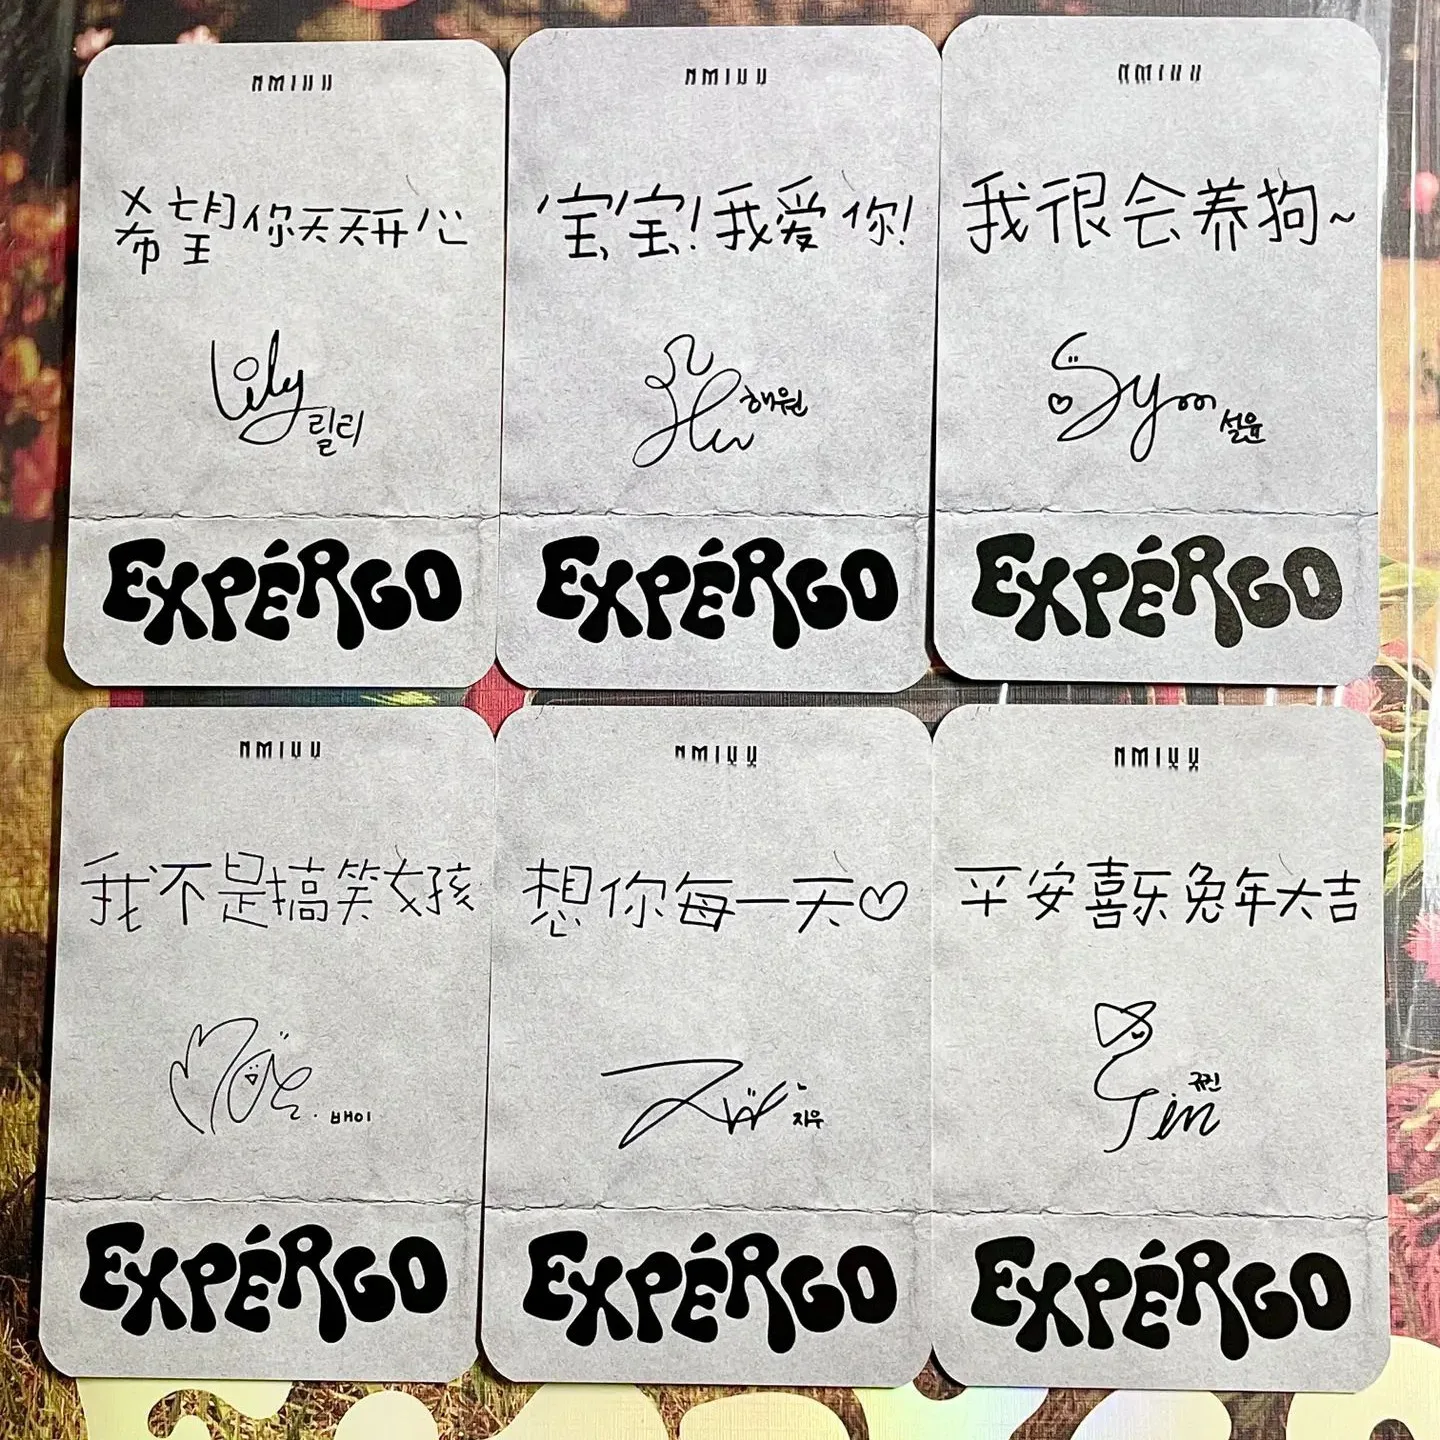 NMIXX
希望你天天开心
Lily
릴리
EXPÉRGO
NMIXX
宝宝!我爱你!
해원
EXPÉRGO
NMIXX
我很会养狗~
Sym
설윤
EXPÉRGO
NMIXX
我不是搞笑女孩
배이
EXPÉRGO
NMIXX
想你每一天♡
지우
EXPÉRGO
NMIXX
平安喜乐兔年大吉
규진
Jin
EXPÉRGO